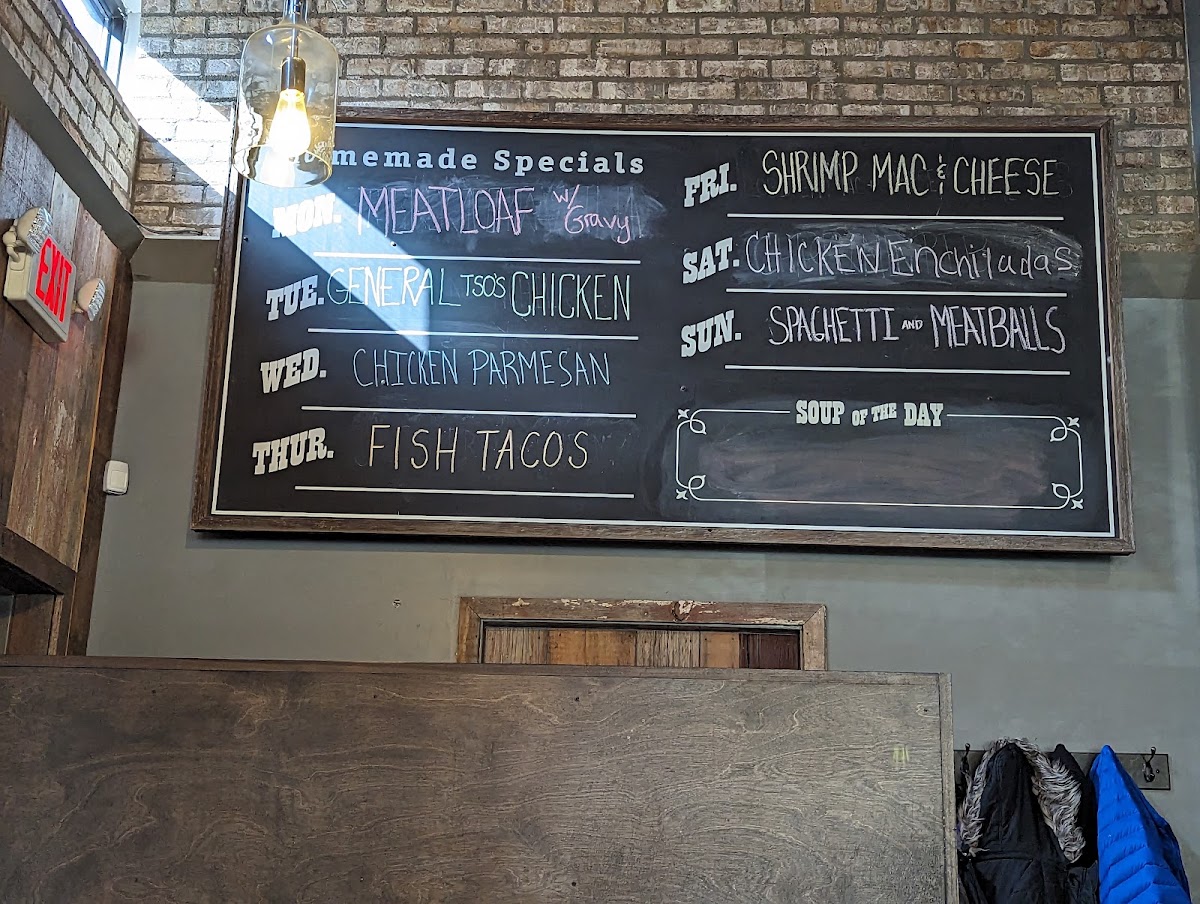 Homemade Specials
MON. MEATLOAF w/ Gravy
TUE. GENERAL TSO'S CHICKEN
WED. CHICKEN PARMESAN
THUR. FISH TACOS
FRI. SHRIMP MAC & CHEESE
SAT. CHICKEN Enchiladas
SUN. SPAGHETTI AND MEATBALLS
SOUP OF THE DAY
EXIT